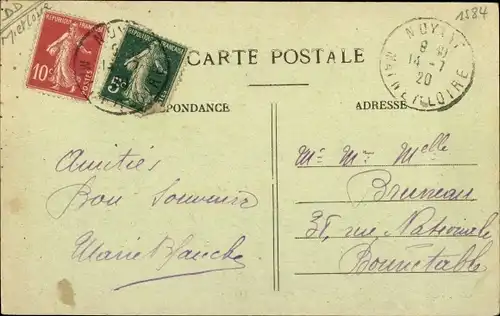 1584
DD
RÉPUBLIQUE FRANÇAISE
10c
RÉPUBLIQUE FRANÇAISE
5c
CARTE POSTALE
NOYANT
8
14 - 7
20
MAINE-ET-LOIRE
PONDANCE
ADRESSE
Amitiés
Bon Souvenir
Marie Blanche
Mr Mme Melle
Bruneau
31, rue Nationale
Bonnétable